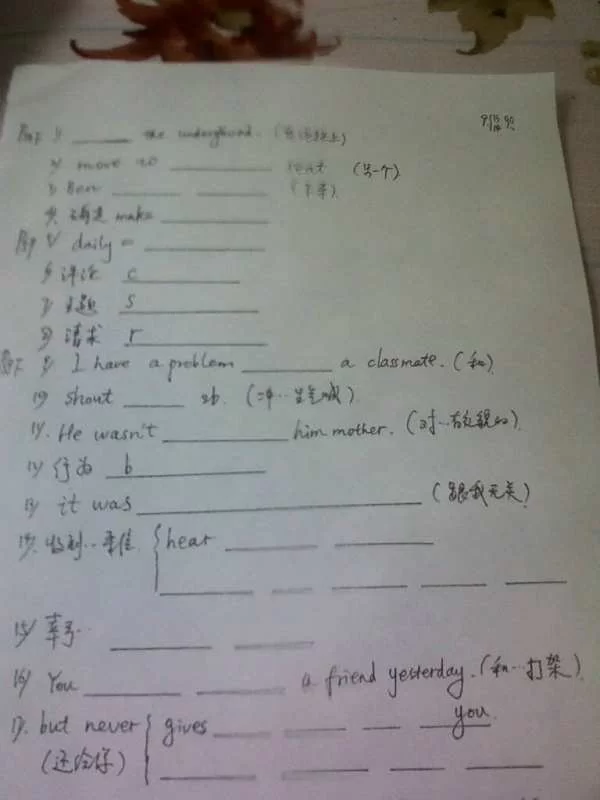 1) ______ the underground.
2) move to ______ seat (另一个)
3) Ben ______ ______
4) ______ make ______
5) daily = ______
6) 评论 c______
7) 主题 s______
8) 请求 r______
9) I have a problem ______ a classmate. (和)
10) shout ______ sb. (冲…生气喊)
11). He wasn't ______ him mother. (对…有礼貌的)
12) 行为 b______
13) it was ______ (跟我无关)
14). 收到…来信 { hear ______ ______
______ ______ ______ ______ ______
15) ______ ______
16) You ______ ______ a friend yesterday. (和…打架)
17. but never { gives ______ ______ ______ you
(还给你) ______ ______ ______ ______